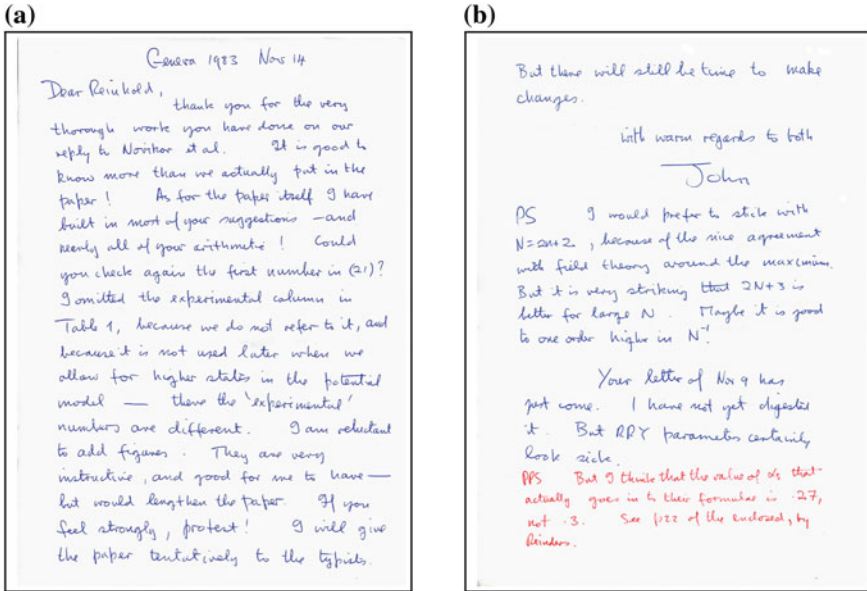 (a)
Geneva 1983 Nov 14
Dear Reinhold,
thank you for the very
thorough work you have done on our
reply to Novikov et al. It is good to
know more than we actually put in the
paper! As for the paper itself I have
built in most of your suggestions — and
nearly all of your arithmetic! Could
you check again the first number in (21)?
I omitted the experimental column in
Table 1, because we do not refer to it, and
because it is not used later when we
allow for higher states in the potential
model — there the 'experimental'
numbers are different. I am reluctant
to add figures. They are very
instructive, and good for me to have —
but would lengthen the paper. If you
feel strongly, protest! I will give
the paper tentatively to the typists.
(b)
But there will still be time to make
changes.
with warm regards to both
John
PS I would prefer to stick with
N=2n+2, because of the nice agreement
with field theory around the maximum.
But it is very striking that 2N+3 is
better for large N. Maybe it is good
to one order higher in N⁻¹.
Your letter of Nov 9 has
just come. I have not yet digested
it. But RRY parameters certainly
look sick.
PPS But I think that the value of αs that
actually goes in to their formulae is .27,
not .3. See p22 of the enclosed, by
Reinders.